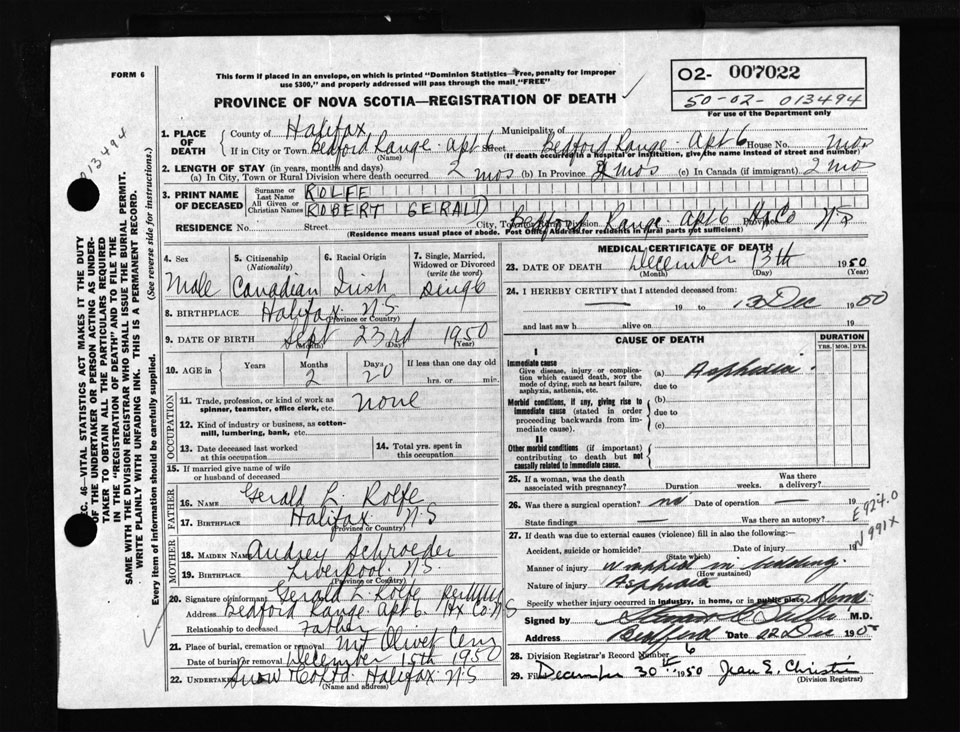 FORM 6
This form if placed in an envelope, on which is printed "Dominion Statistics—Free, penalty for improper
use $300," and properly addressed will pass through the mail "FREE"
PROVINCE OF NOVA SCOTIA—REGISTRATION OF DEATH
O2- 007022
50-02-013494
For use of the Department only
013494
SEC. 46—VITAL STATISTICS ACT MAKES IT THE DUTY
OF THE UNDERTAKER OR PERSON ACTING AS UNDER-
TAKER TO OBTAIN ALL THE PARTICULARS REQUIRED
IN THE "REGISTRATION OF DEATH" AND TO FILE THE
SAME WITH THE DIVISION REGISTRAR WHO SHALL ISSUE THE BURIAL PERMIT.
WRITE PLAINLY WITH UNFADING INK. THIS IS A PERMANENT RECORD.
Every item of information should be carefully supplied. (See reverse side for instructions.)
1. PLACE OF DEATH
County of Halifax Municipality of
If in City or Town Bedford Range. apt 6 Street Bedford Range. Apt 6 House No.
(Name) (If death occurred in a hospital or institution, give the name instead of street and number)
2. LENGTH OF STAY (in years, months and days)
(a) In City, Town or Rural Division where death occurred 2 mos (b) In Province 2 mos (c) In Canada (if immigrant) 2 mo
3. PRINT NAME OF DECEASED
Surname or Last Name ROLFE
All Given or Christian Names ROBERT GERALD
RESIDENCE No. Street City, Town or Rural Division Bedford Range. apt 6 Hx Co Province N S
(Residence means usual place of abode. Post Office Address for residents in rural parts not sufficient)
4. Sex Male
5. Citizenship (Nationality) Canadian
6. Racial Origin Irish
7. Single, Married, Widowed or Divorced (write the word) Single
8. BIRTHPLACE Halifax N.S
(Province or Country)
9. DATE OF BIRTH Sept 23rd 1950
(Month) (Day) (Year)
10. AGE in Years Months 2 Days 20 If less than one day old hrs. or min.
OCCUPATION
11. Trade, profession, or kind of work as spinner, teamster, office clerk, etc. None
12. Kind of industry or business, as cotton-mill, lumbering, bank, etc.
13. Date deceased last worked at this occupation
14. Total yrs. spent in this occupation
15. If married give name of wife or husband of deceased
FATHER
16. NAME Gerald L. Rolfe
17. BIRTHPLACE Halifax N.S
(Province or Country)
MOTHER
18. MAIDEN NAME Audrey Schroeder
19. BIRTHPLACE Liverpool N.S.
(Province or Country)
20. Signature of informant Gerald L Rolfe
Address Bedford Range. Apt 6. Hx Co. N S
Relationship to deceased Father
21. Place of burial, cremation or removal Mt Olivet Cem
Date of burial or removal December 15th 1950
22. UNDERTAKER Snow Co Ltd. Halifax N.S
(Name and address)
MEDICAL CERTIFICATE OF DEATH
23. DATE OF DEATH December 13th 1950
(Month) (Day) (Year)
24. I HEREBY CERTIFY that I attended deceased from:
— 19 to 13 Dec 1950
and last saw h alive on 19
CAUSE OF DEATH
DURATION
YRS. MOS. DYS.
I
Immediate cause
Give disease, injury or complication which caused death, not the mode of dying, such as heart failure, asphyxia, asthenia, etc.
(a) Asphyxia
due to
Morbid conditions, if any, giving rise to immediate cause (stated in order proceeding backwards from immediate cause).
(b)
due to
(c)
II
Other morbid conditions (if important) contributing to death but not causally related to immediate cause.
25. If a woman, was the death associated with pregnancy? Duration weeks. Was there a delivery?
26. Was there a surgical operation? no Date of operation — 19
State findings — Was there an autopsy?
E 924.0
N 991X
27. If death was due to external causes (violence) fill in also the following:
Accident, suicide or homicide? Date of injury 19
(State which)
Manner of injury in bedding.
(How sustained)
Nature of injury Asphyxia
Specify whether injury occurred in industry, in home, or in public place Home
Signed by M.D.
Address Bedford Date Dec 19
28. Division Registrar's Record Number 6
29. Filed December 30 1950 Jean E. Christie
(Division Registrar)